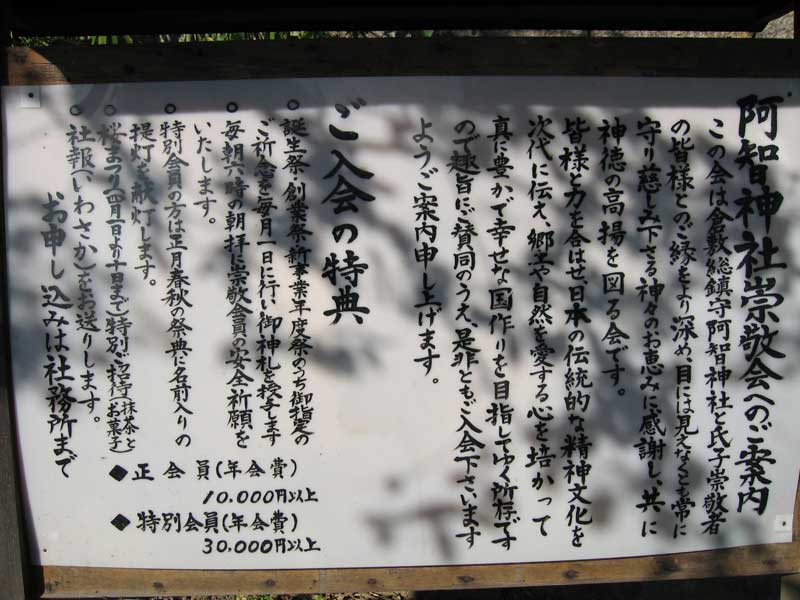 阿智神社崇敬会へのご案内
この会は倉敷総鎮守阿智神社と氏子崇敬者
の皆様とのご縁をより深め、目には見えなくとも常に
守り慈しみ下さる神々のお恵みに感謝し、共に
神徳の高揚を図る会です。
皆様と力を合はせ、日本の伝統的な精神文化を
次代に伝え、郷土や自然を愛する心を培かって
真に豊かで幸せな国作りを目指してゆく所存です
ので趣旨にご賛同のうえ、是非ともご入会下さいます
ようご案内申し上げます。
ご入会の特典
○誕生祭・創業祭・新事業年度祭のうち御指定の
ご祈念を毎月一日に行い御神札を授与します
○毎朝六時の朝拝に崇敬会員の安全祈願を
いたします。
○特別会員の方は正月春秋の祭典に名前入りの
提灯を献灯します。
○桜まつり(四月一日より十日まで)特別ご招待(抹茶とお菓子)
○社報(いわさか)をお送りします。
お申し込みは社務所まで
◆正会員(年会費)
10.000円以上
◆特別会員(年会費)
30.000円以上